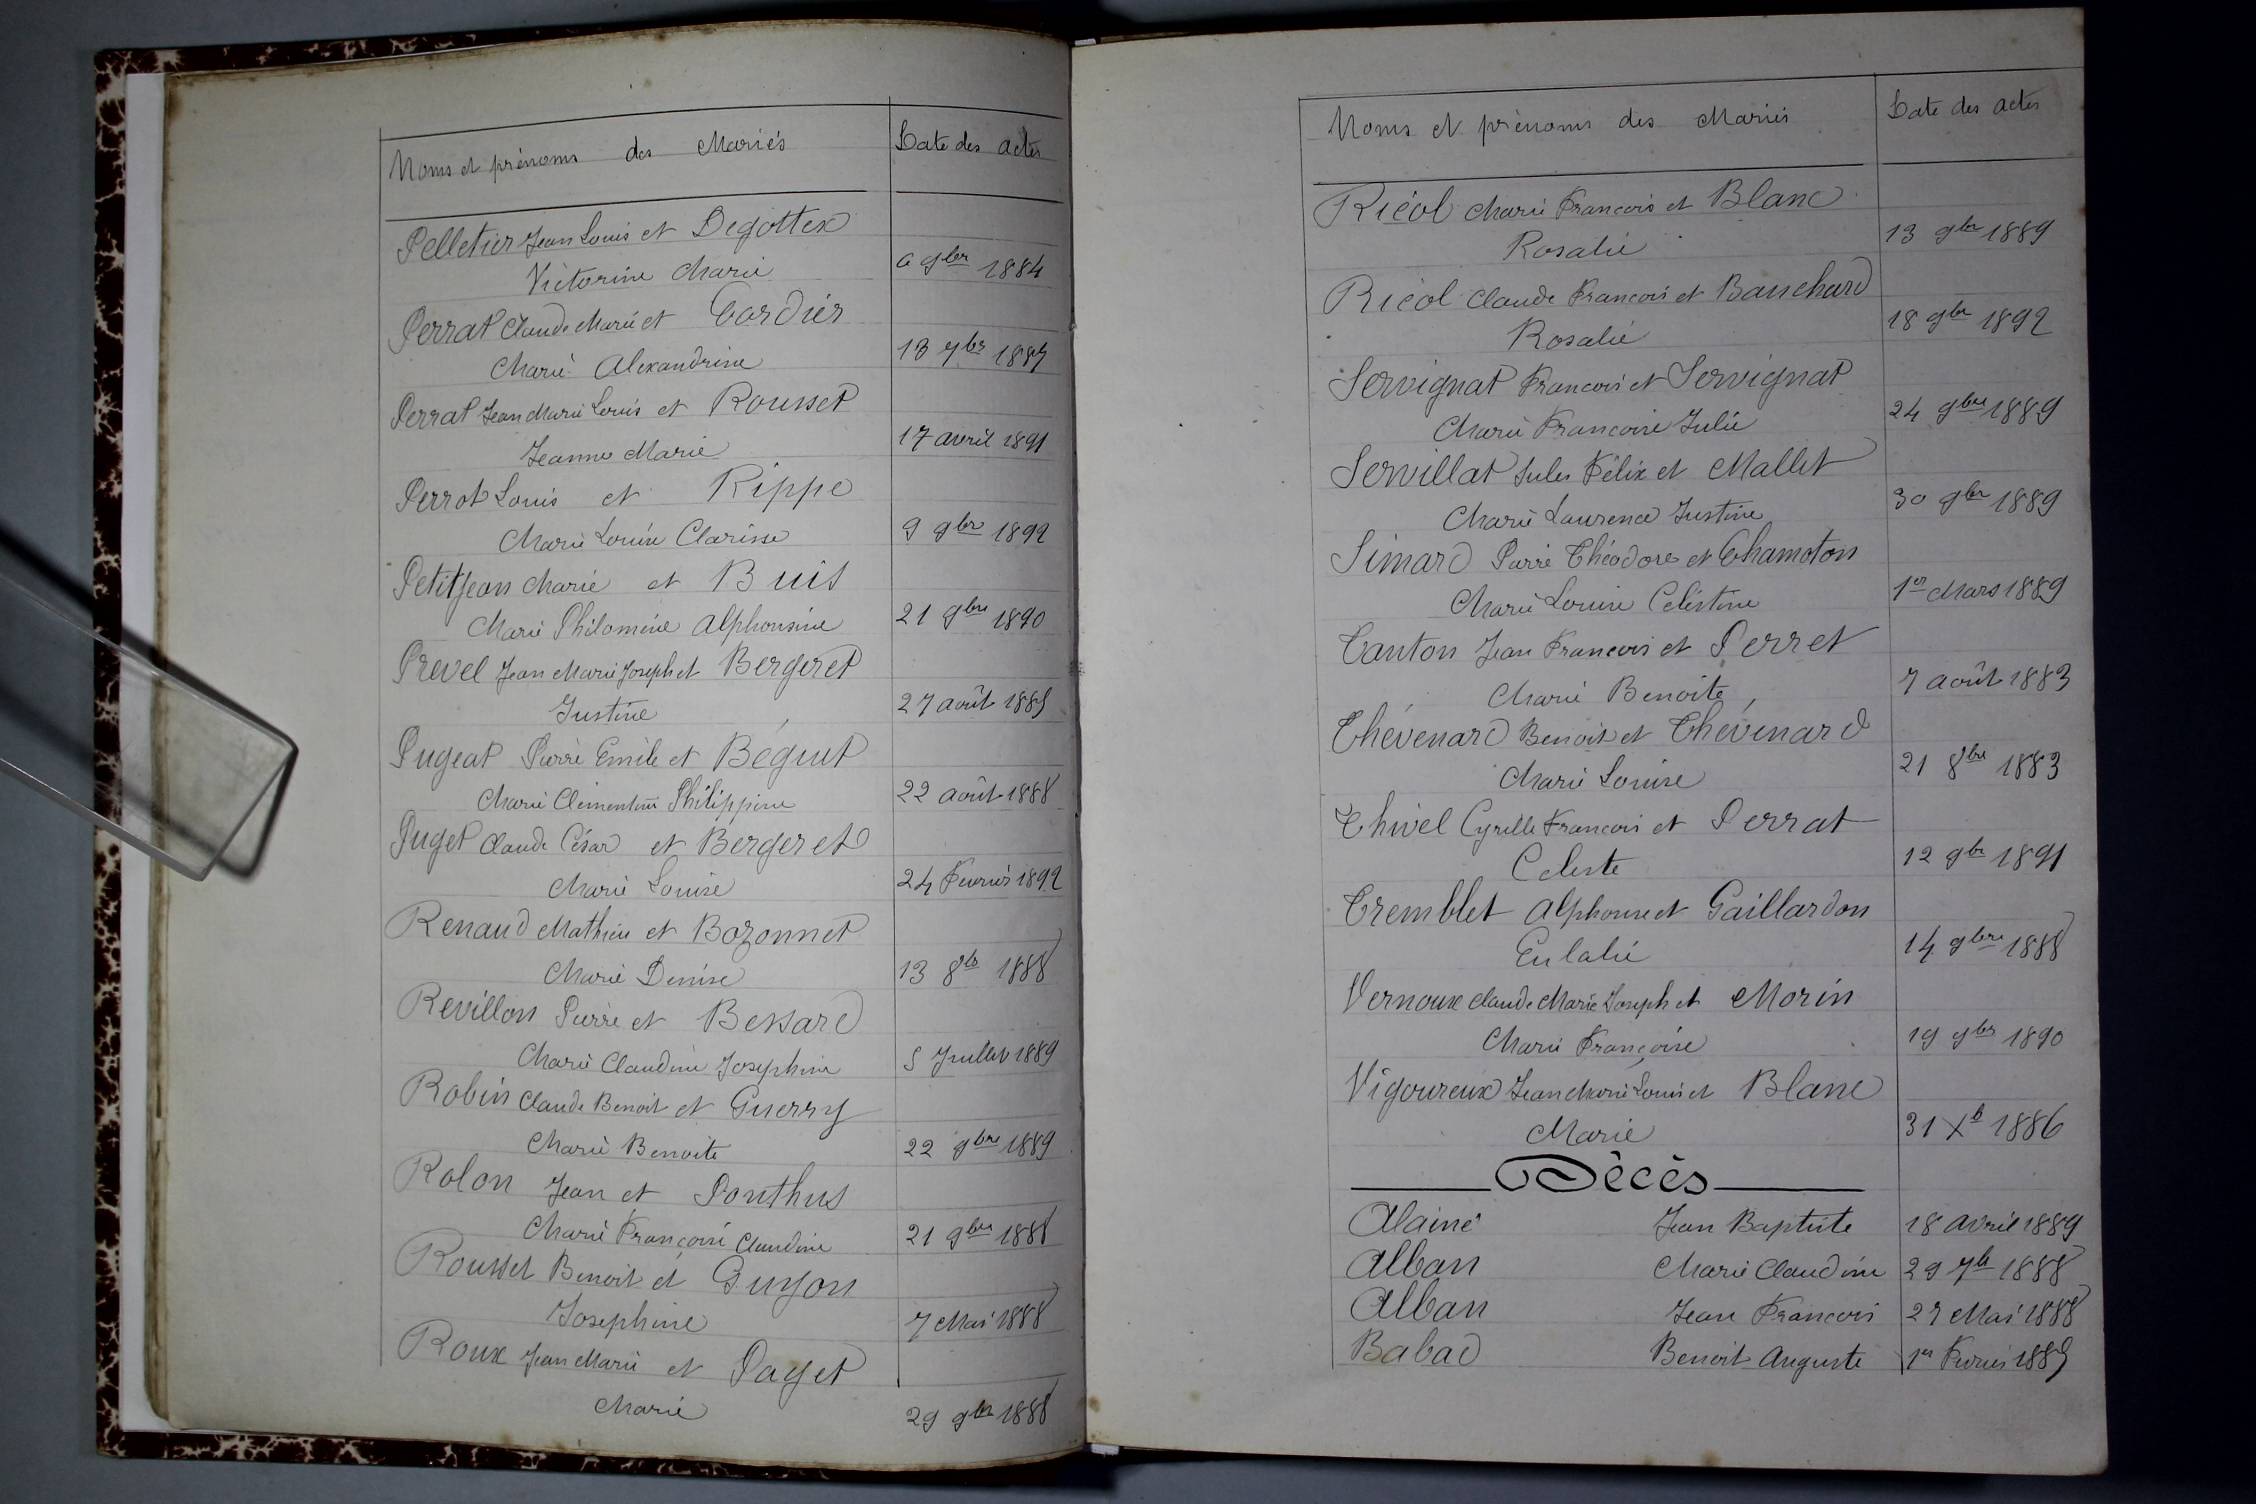 Noms et prénoms des Mariés
Date des actes
Pelletier Jean Louis et Degottex
Victorine Marie
6 9bre 1884
Perrat Claude Marie et Cordier
Marie Alexandrine
13 7bre 1887
Perrat Jean Marie Louis et Rousset
Jeanne Marie
17 avril 1891
Perrot Louis et Rippe
Marie Louise Clarisse
9 9bre 1892
Petitjean Marie et Buis
Marie Philomène Alphonsine
21 9bre 1890
Prevel Jean Marie Joseph et Bergeret
Justine
27 août 1885
Pugeat Pierre Emile et Béguet
Marie Clementine Philippine
22 août 1888
Puget Claude César et Bergeret
Marie Louise
24 Fevrier 1892
Renaud Mathieu et Bozonnet
Marie Denise
13 8bre 1888
Revillon Pierre et Bessard
Marie Claudine Josephine
5 Juillet 1889
Robin Claude Benoit et Guerry
Marie Benoite
22 9bre 1889
Rolon Jean et Ponthus
Marie Francoise Claudine
21 9bre 1888
Rousset Benoit et Guyon
Josephine
7 Mai 1888
Roux Jean Marie et Paget
Marie
29 9bre 1888
Noms et prénoms des Mariés
Date des actes
Ricol Marie Francois et Blanc
Rosalie
13 9bre 1889
Ricol Claude Francois et Banchard
Rosalie
18 9bre 1892
Servignat Francois et Servignat
Marie Francoise Julie
24 9bre 1889
Servillat Jules Félix et Mallet
Marie Laurence Justine
30 9bre 1889
Simard Pierre Théodore et Chamoton
Marie Louise Celestine
1er Mars 1889
Tanton Jean Francois et Perret
Marie Benoite
7 août 1883
Thévenard Benoit et Thévenard
Marie Louise
21 8bre 1883
Thivel Cyrille Francois et Perrat
Celeste
12 9bre 1891
Tremblet Alphonse et Gaillardon
Eulalie
14 9bre 1888
Vernoux Claude Marie Joseph et Morin
Marie Françoise
19 9bre 1890
Vigoureux Jean Marie Louis et Blanc
Marie
31 Xb 1886
Décès
Alainé Jean Baptiste 18 avril 1889
Alban Marie Claudine 29 7b 1888
Alban Jean Francois 27 Mai 1888
Babad Benoit Auguste 1er Fevrier 1885